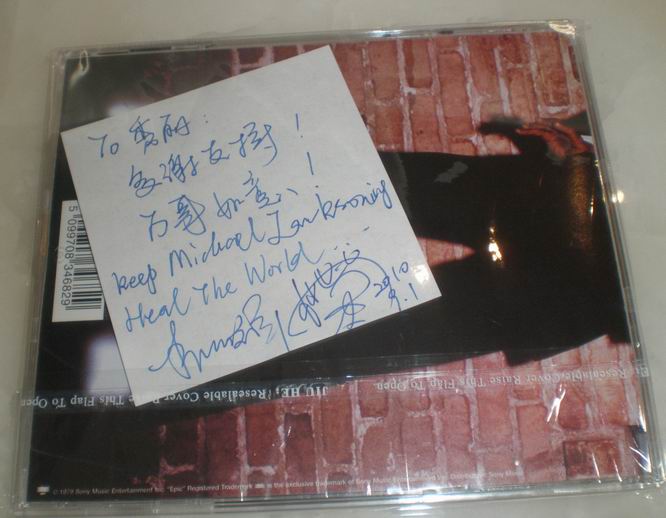 To 秀丽:
多谢支持!
万事如意!!
keep Michael Jacksoning
Heal The World....
2010
9.1
5 099708 346829
Resealable Cover Raise This Flap To Open
JIU HE, (Resealable Cover Raise This Flap To Open
© 1979 Sony Music Entertainment Inc. "Epic" Registered Trademark is the exclusive trademark of Sony Music Distribution Sony Music